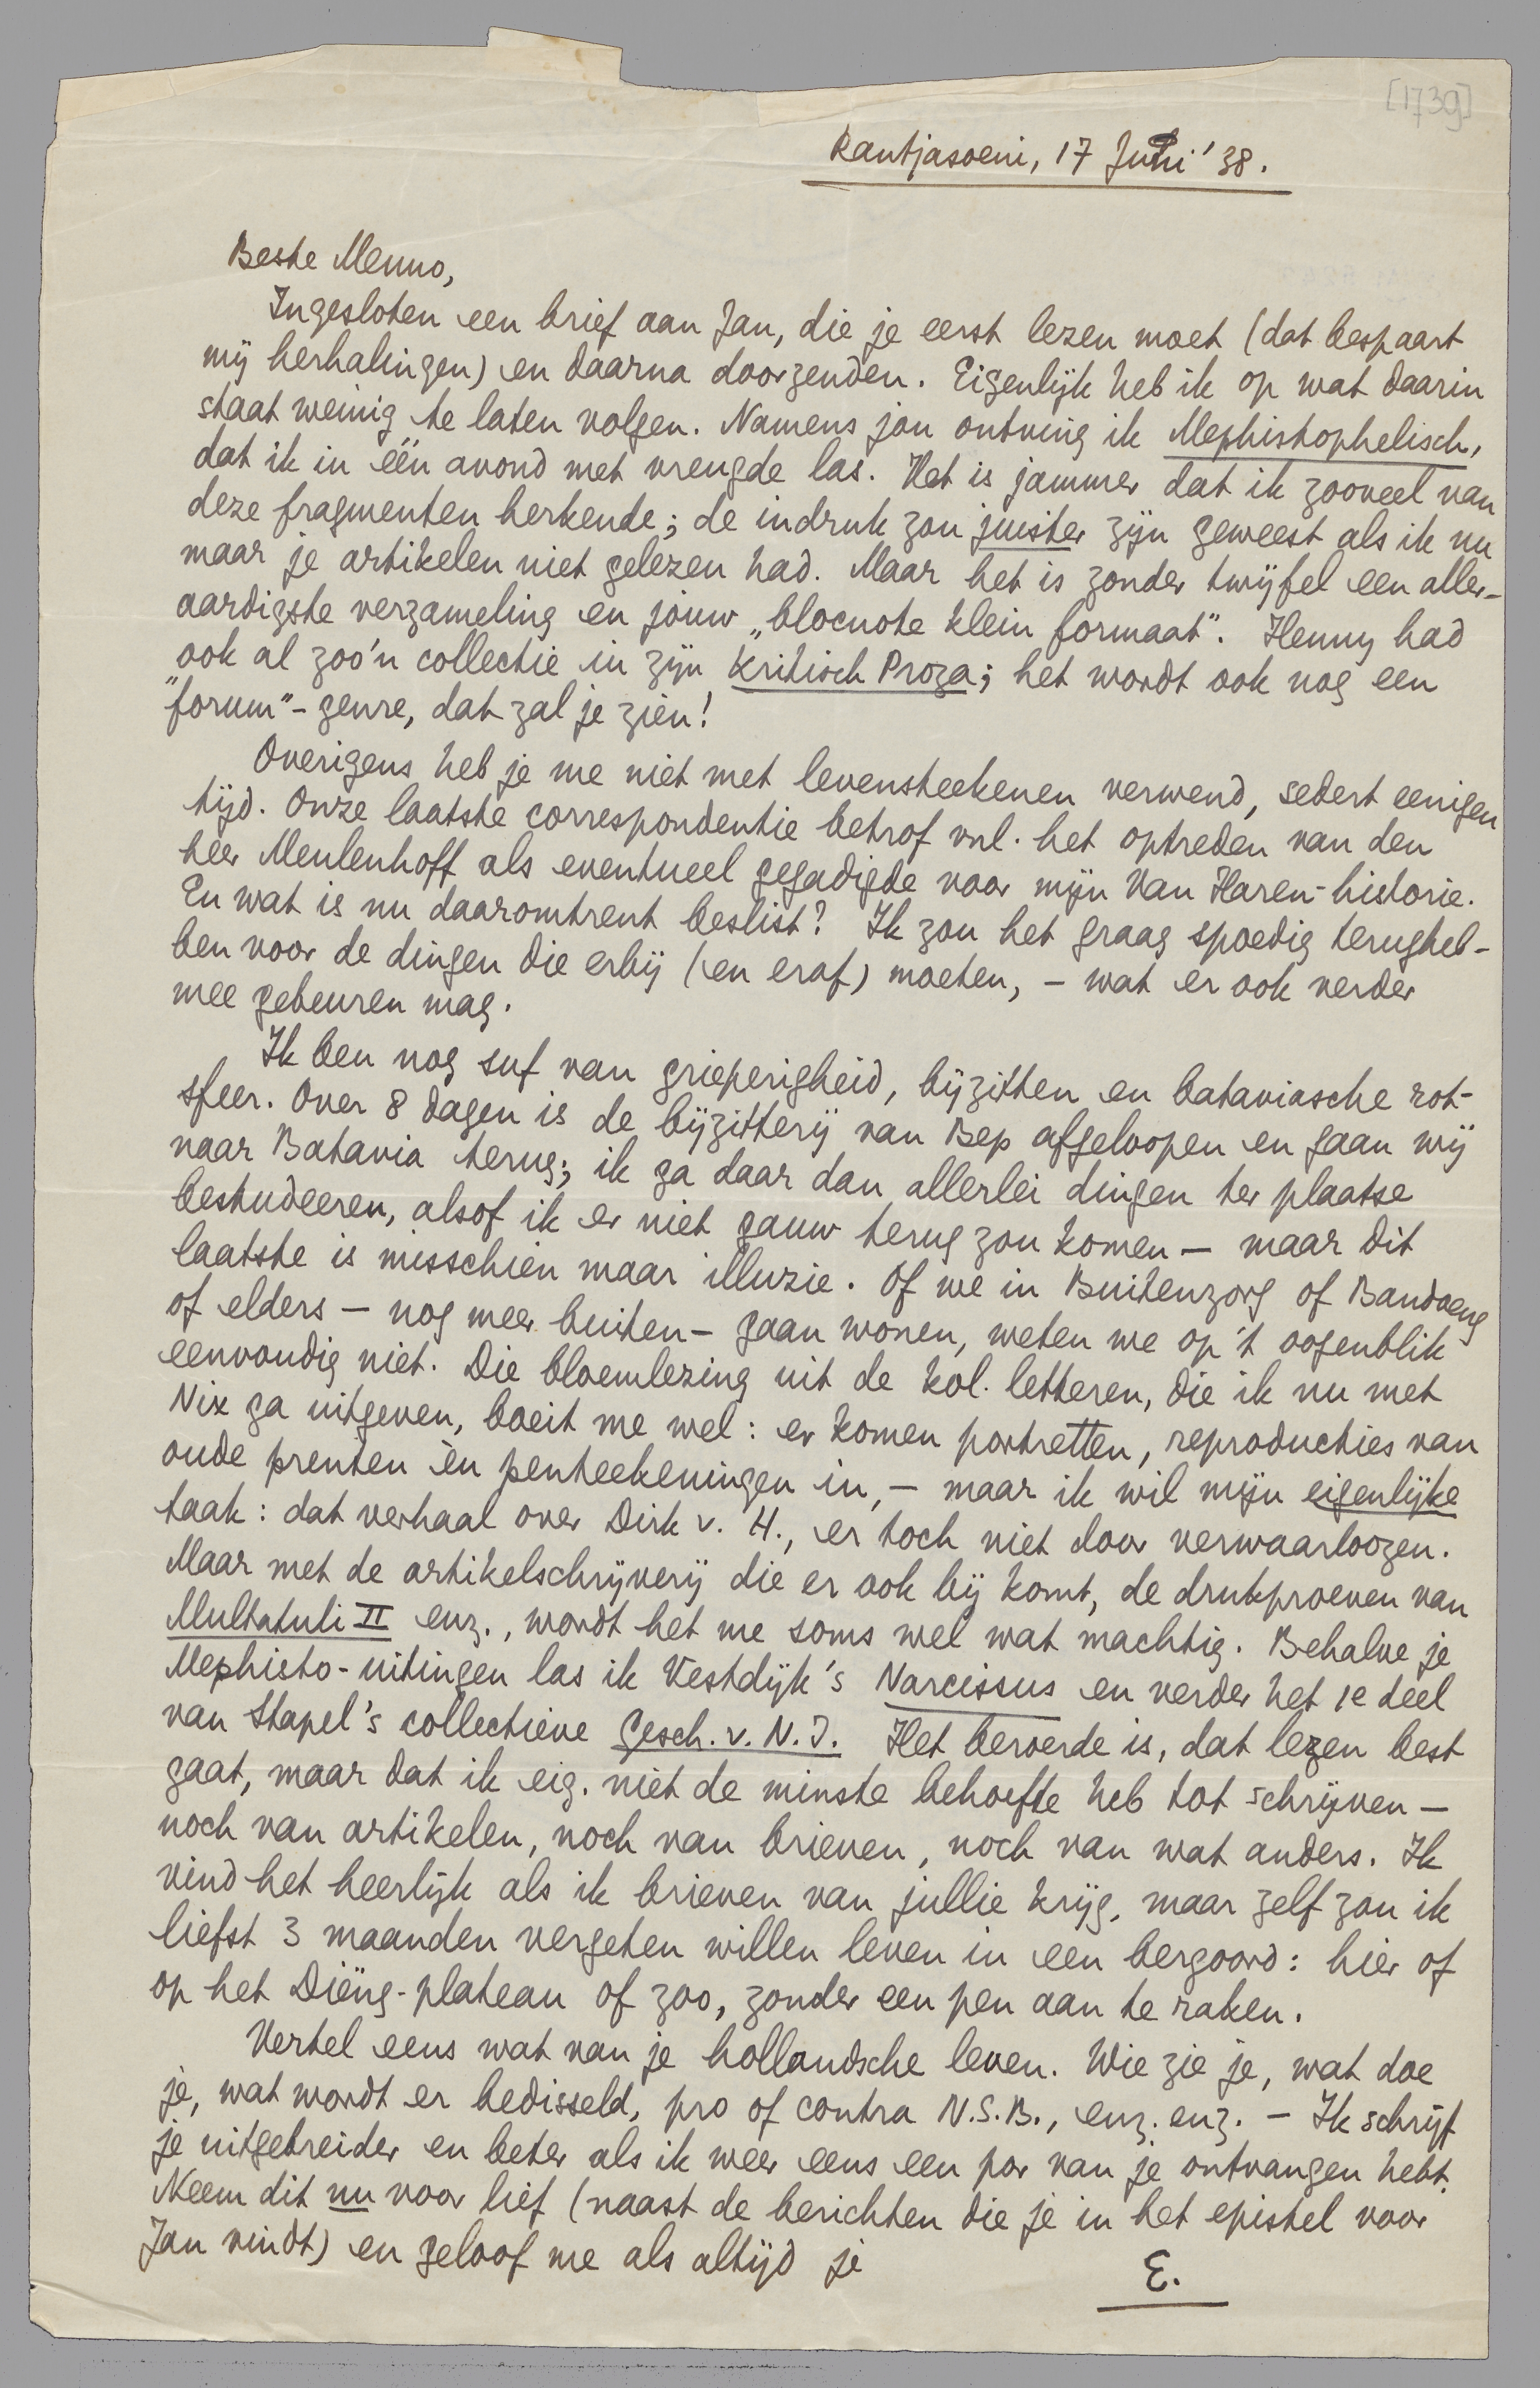 [1739]
Rantjasoeni, 17 Juni '38.
Beste Menno,
Ingesloten een brief aan Jan, die je eerst lezen moet (dat bespaart
mij herhalingen) en daarna doorzenden. Eigenlijk heb ik op wat daarin
staat weinig te laten volgen. Namens jou ontving ik Mephistophelisch,
dat ik in één avond met vreugde las. Het is jammer dat ik zooveel van
deze fragmenten herkende; de indruk zou juister zijn geweest als ik nu
maar je artikelen niet gelezen had. Maar het is zonder twijfel een aller-
aardigste verzameling en jouw „blocnote klein formaat". Henny had
ook al zoo'n collectie in zijn Kritisch Proza; het wordt ook nog een
"forum"-genre, dat zal je zien!
Overigens heb je me niet met levensteekenen verwend, sedert eenigen
tijd. Onze laatste correspondentie betrof vnl. het optreden van den
heer Meulenhoff als eventueel gegadigde voor mijn Van Haren-historie.
En wat is nu daaromtrent beslist? Ik zou het graag spoedig terugheb-
ben voor de dingen die erbij (en eraf) moeten, – wat er ook verder
mee gebeuren mag.
Ik ben nog suf van grieperigheid, bijzitten en bataviasche rot-
sfeer. Over 8 dagen is de bijzitterij van Bep afgeloopen en gaan wij
naar Batavia terug; ik ga daar dan allerlei dingen ter plaatse
bestudeeren, alsof ik er niet gauw terug zou komen – maar dit
laatste is misschien maar illuzie. Of we in Buitenzorg of Bandoeng
of elders – nog meer buiten – gaan wonen, weten we op 't oogenblik
eenvoudig niet. Die bloemlezing uit de kol. letteren, die ik nu met
Nix ga uitgeven, boeit me wel: er komen portretten, reproducties van
oude prenten èn penteekeningen in, – maar ik wil mijn eigenlijke
taak: dat verhaal over Dirk v. H., er toch niet door verwaarloozen.
Maar met de artikelschrijverij die er ook bij komt, de drukproeven van
Multatuli II enz., wordt het me soms wel wat machtig. Behalve je
Mephisto-uitingen las ik Vestdijk's Narcissus en verder het 1e deel
van Stapel's collectieve Gesch. v. N. I. Het beroerde is, dat lezen best
gaat, maar dat ik eig. niet de minste behoefte heb tot schrijven –
noch van artikelen, noch van brieven, noch van wat anders. Ik
vind het heerlijk als ik brieven van jullie krijg, maar zelf zou ik
liefst 3 maanden vergeten willen leven in een bergoord: hier of
op het Diëng-plateau of zoo, zonder een pen aan te raken.
Vertel eens wat van je hollandsche leven. Wie zie je, wat doe
je, wat wordt er bedisseld, pro of contra N.S.B., enz. enz. – Ik schrijf
je uitgebreider en beter als ik weer eens een por van je ontvangen hebt.
Neem dit nu voor lief (naast de berichten die je in het epistel voor
Jan vindt) en geloof me als altijd je
E.